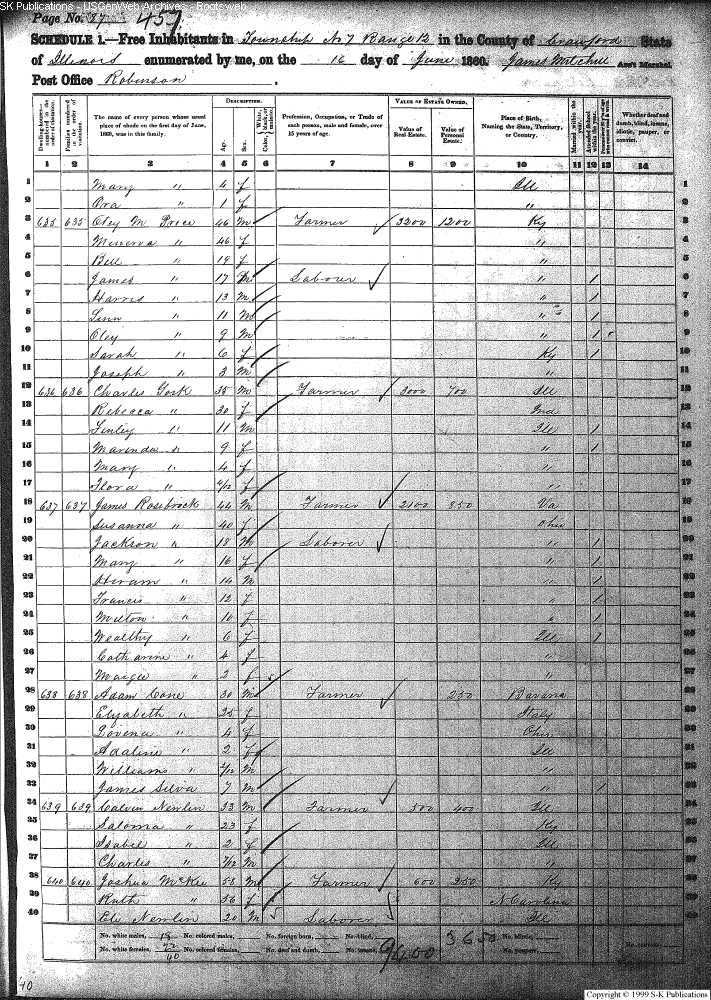 SK Publications - USGenWeb Archives - Rootsweb
Page No. 457
SCHEDULE 1.—Free Inhabitants in Township No 7 Range 12 in the County of Crawford State
of Illinois enumerated by me, on the 16 day of June 1860. James Mitchell Ass't Marshal.
Post Office Robinson
Dwelling-houses— numbered in the order of visitation. Families numbered in the order of visitation. The name of every person whose usual place of abode on the first day of June, 1860, was in this family. DESCRIPTION. Age. Sex. Color, White, black, or mulatto. Profession, Occupation, or Trade of each person, male and female, over 15 years of age. VALUE OF ESTATE OWNED. Value of Real Estate. Value of Personal Estate. Place of Birth, Naming the State, Territory, or Country. Married within the year. Attended School within the year. Whether deaf and dumb, blind, insane, idiotic, pauper, or convict.
1 2 3 4 5 6 7 8 9 10 11 12 13 14
1 Mary " 4 f Ill 1
2 Ora " 1 f " 2
3 635 635 Oley M Price 46 m Farmer 3200 1200 Ky 3
4 Minerva " 46 f " 4
5 Bell " 19 f " 5
6 James " 17 m Laborer " 1 6
7 Harris " 13 m " 1 7
8 Linn " 11 m " 1 8
9 Oley " 9 m " 1 9
10 Sarah " 6 f Ky 1 10
11 Joseph " 3 m " 11
12 636 636 Charles York 35 m Farmer 3000 700 Ill 12
13 Rebecca " 30 f Ind 13
14 Finley " 11 m Ill 1 14
15 Marinda " 9 f " 1 15
16 Mary " 4 f " 16
17 Flora " f " 17
18 637 637 James Rosebrock 44 m Farmer 2100 850 Va 18
19 Susanna " 40 f Ohio 19
20 Jackson " 18 m Laborer " 1 20
21 Mary " 16 f " 1 21
22 Hiram " 14 m " 1 22
23 Francis " 12 f " 1 23
24 Milton " 10 f " 1 24
25 Wealthy " 6 f Ill 1 25
26 Catharine " 4 f " 26
27 Maigee " 2 f " 27
28 638 638 Adam Cone 30 m Farmer 250 Bavaria 28
29 Elizabeth " 25 f Italy 29
30 Lovena " 4 f Ohio 30
31 Adaline " 2 f Ill 31
32 Williams " m " 32
33 James Silva 7 m " 1 33
34 639 639 Calvin Newlin 33 m Farmer 500 400 Ill 34
35 Saloma " 23 f Ky 35
36 Isabel " 2 f Ill 36
37 Charles " 7/12 m " 37
38 640 640 Joshua McKee 58 m Farmer 600 250 Ky 38
39 Ruth " 56 f N Carolina 39
40 Eli Newlin 20 m Laborer Ill 40
No. white males, 18 No. colored males, No. foreign born, No. blind, 9400 3650 No. idiotic,
No. white females, 22 No. colored females, No. deaf and dumb, No. insane, No. paupers,
40
40
Copyright © 1999 S-K Publications